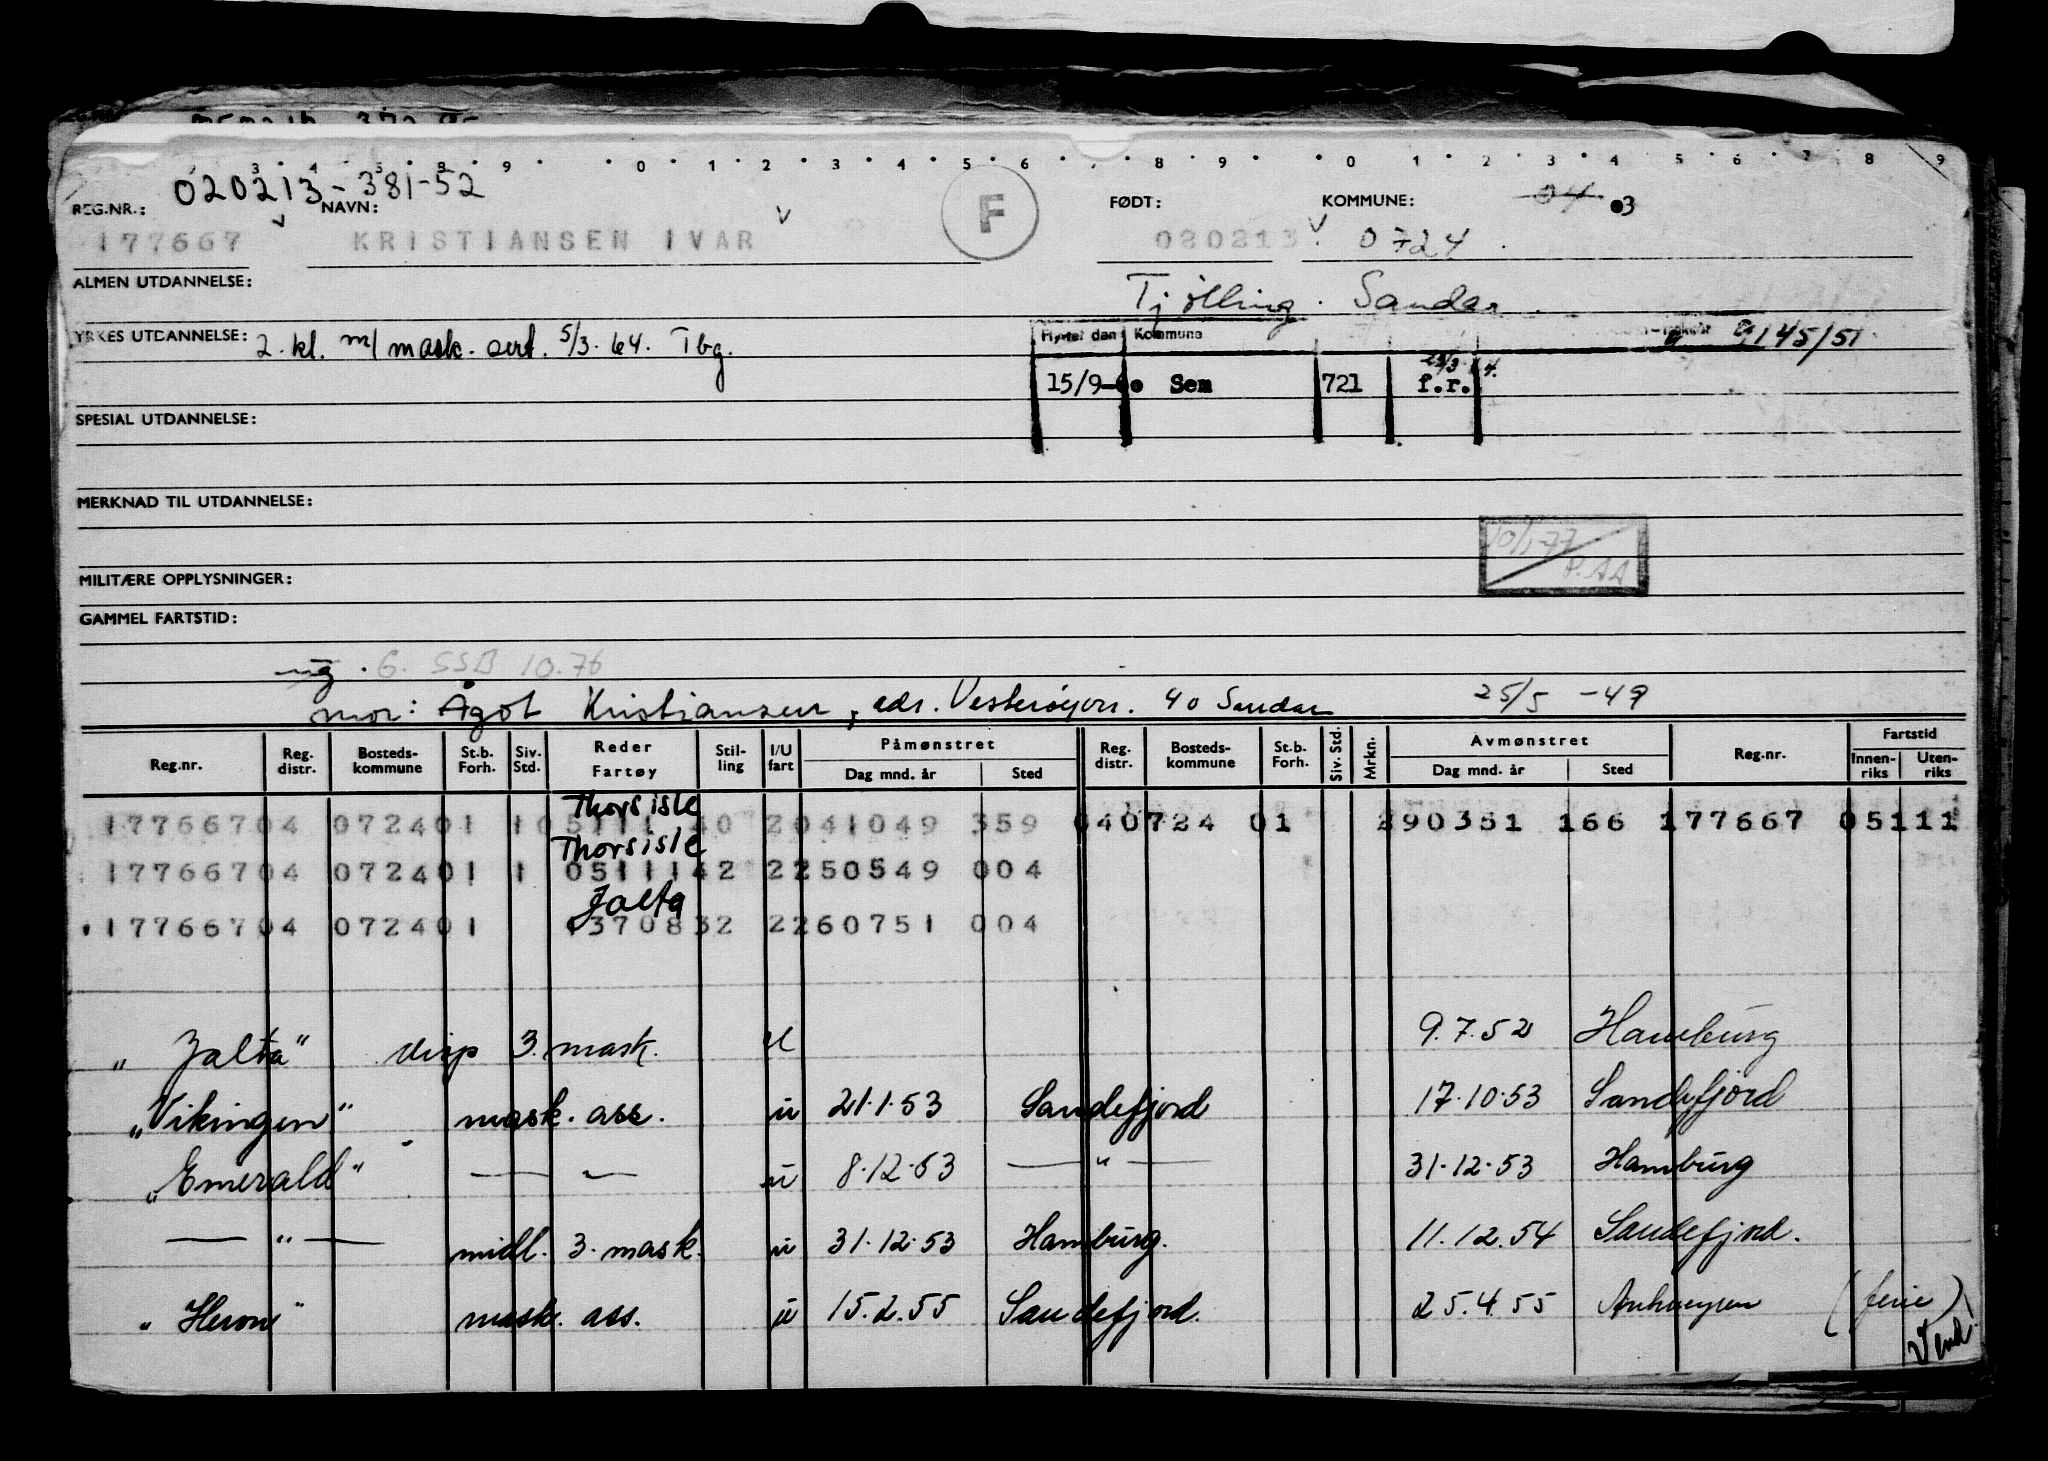 020213-381-52
REG.NR.: NAVN: F FØDT: KOMMUNE: 04 03
177667 KRISTIANSEN IVAR 020213 0724
ALMEN UTDANNELSE: Tjølling. Sandar
YRKES UTDANNELSE: 2. kl. m/ mask. sert. 5/3.64. Tbg.
Kommune 145/51
15/9-60 Sem 721 f.r.
SPESIAL UTDANNELSE:
MERKNAD TIL UTDANNELSE:
10/1-77
P.AA
MILITÆRE OPPLYSNINGER:
GAMMEL FARTSTID:
ug. G. SSB 10.76
mor: Ågot Kristiansen, adr. Vesterøyvn. 40 Sandar 25/5 -49
Reg.nr. Reg. distr. Bosteds-kommune St.b. Forh. Siv. Std. Reder Fartøy Stil-ling I/U fart Påmønstret Dag mnd. år Sted Reg. distr. Bosteds-kommune St.b. Forh. Siv. Std. Mrkn. Avmønstret Dag mnd. år Sted Reg.nr. Fartstid Innen-riks Uten-riks
Thorsisle
17766704 072401 1 051111 40 2041049 359 040724 01 290351 166 177667 05111
Thorsisle
17766704 072401 1 0511142 2250549 004
Jalta
17766704 072401 0370832 2260751 004
"Jalta" disp 3. mask. u 9.7.52 Hamburg
"Vikingen" mask. ass. u 21.1.53 Sandefjord 17.10.53 Sandefjord
"Emerald" — — u 8.12.53 — " — 31.12.53 Hamburg
— " — midl. 3. mask. u 31.12.53 Hamburg. 11.12.54 Sandefjord.
"Heron" mask. ass. u 15.2.55 Sandefjord. 25.4.55 Antwerpen (ferie)
Vend